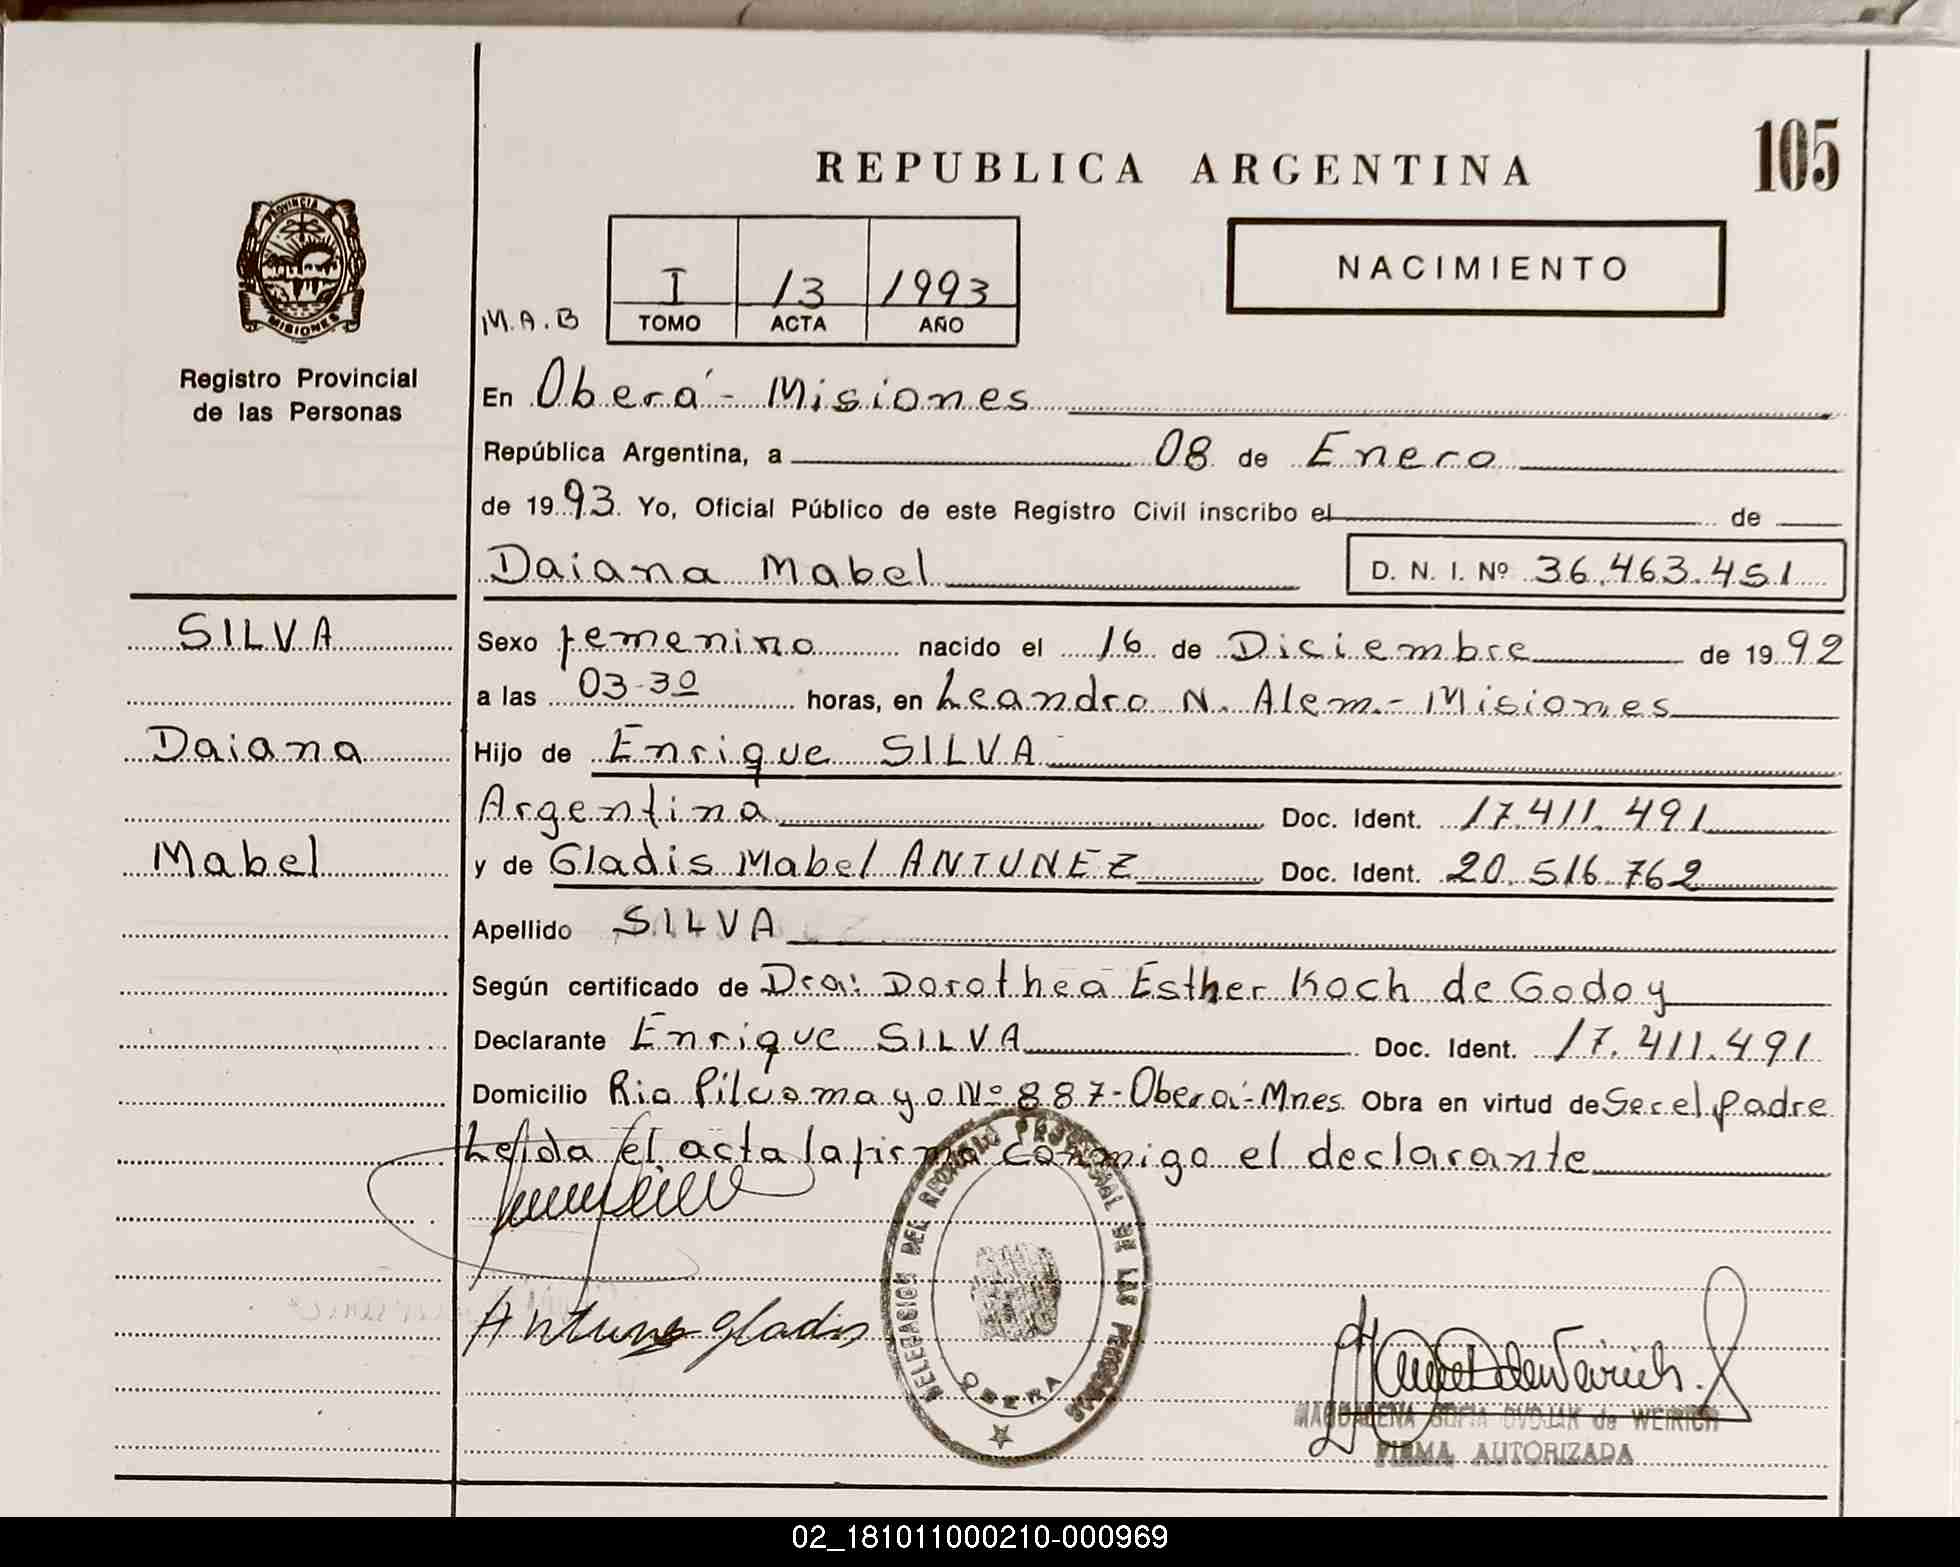 105
REPUBLICA ARGENTINA
NACIMIENTO
PROVINCIA
MISIONES
Registro Provincial
de las Personas
M.A.B
I 13 1993
TOMO ACTA AÑO
En Oberá - Misiones
República Argentina, a 08 de Enero
de 1993. Yo, Oficial Público de este Registro Civil inscribo el de
Daiana Mabel D. N. I. Nº 36.463.451
SILVA
Daiana
Mabel
Sexo femenino nacido el 16 de Diciembre de 1992
a las 03-30 horas, en Leandro N. Alem - Misiones
Hijo de Enrique SILVA
Argentina Doc. Ident. 17.411.491
y de Gladis Mabel ANTUNEZ Doc. Ident. 20.516.762
Apellido SILVA
Según certificado de Dra: Dorothea Esther Koch de Godoy
Declarante Enrique SILVA Doc. Ident. 17.411.491
Domicilio Rio Pilcomayo Nº 887-Oberá-Mnes. Obra en virtud de Ser el padre
Leída el acta la firma conmigo el declarante
DELEGACION DEL REGISTRO PROVINCIAL DE LAS PERSONAS
OBERA
Antunez Gladis
MAGDALENA SOFIA DVOJAK de WEIRICH
FIRMA AUTORIZADA
02_181011000210-000969